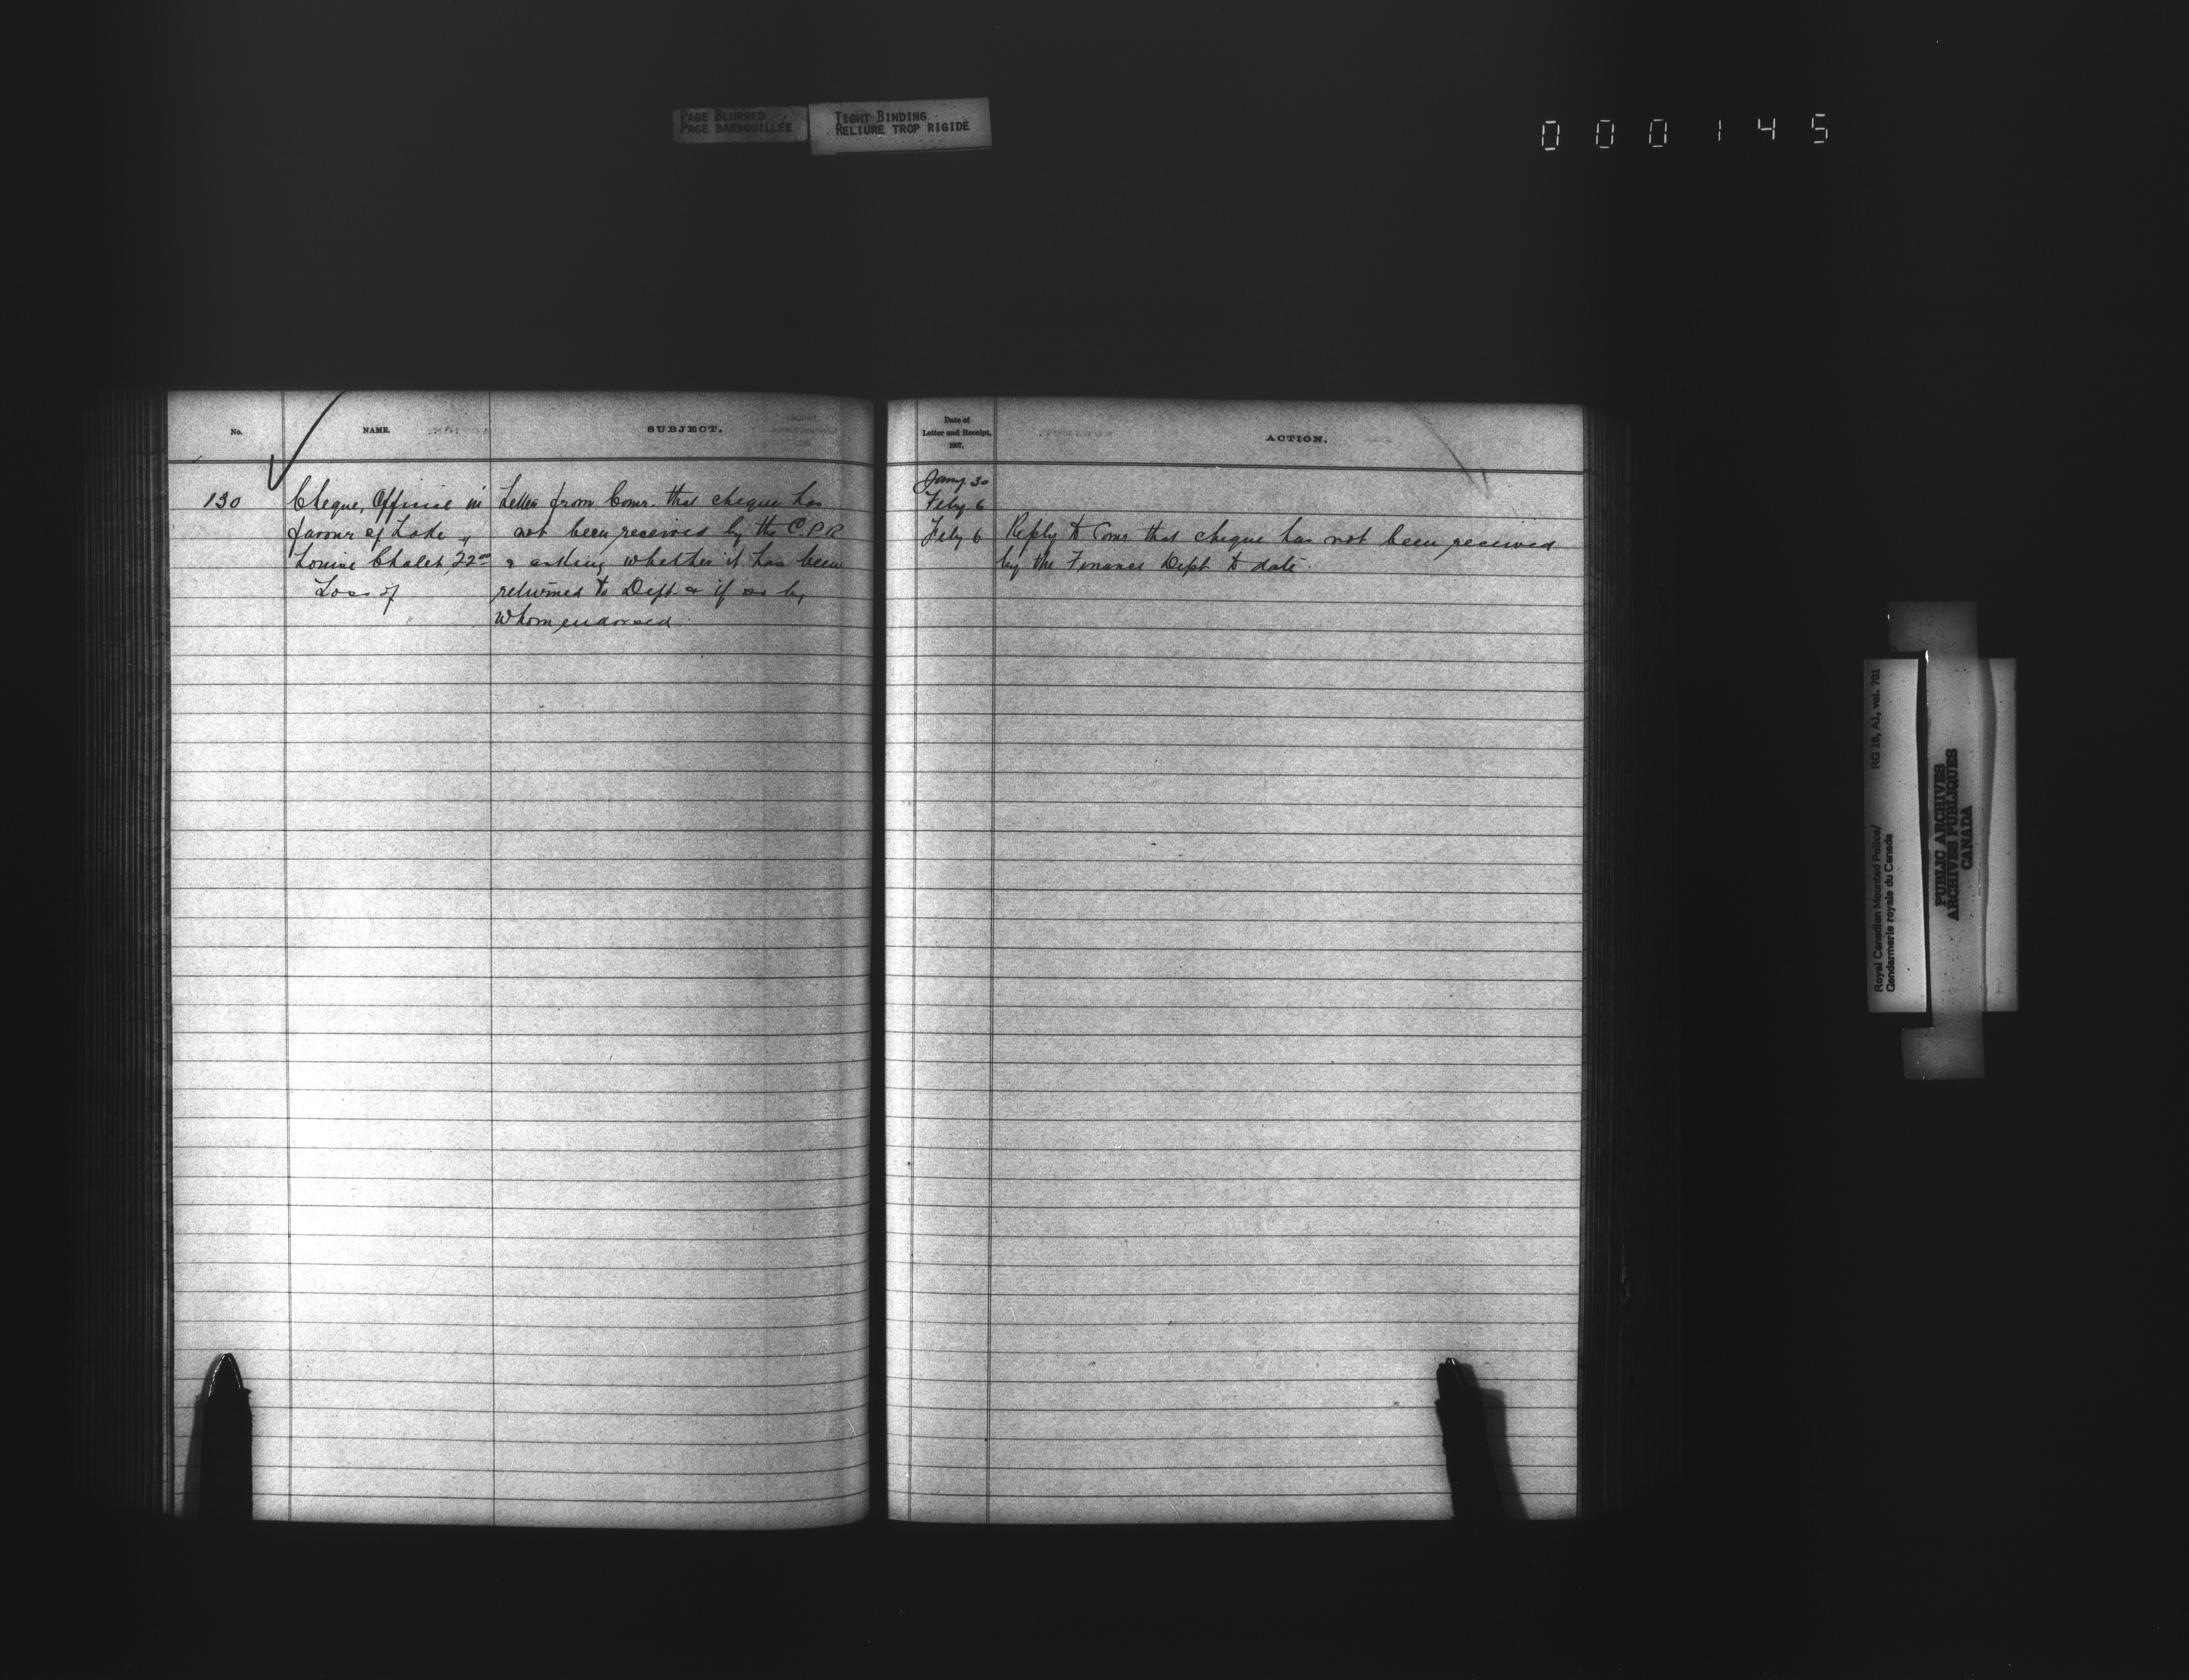 PAGE BLURRED
PAGE BARBOUILLÉE
TIGHT BINDING
RELIURE TROP RIGIDE
000145
No.
NAME.
SUBJECT.
130
Cheque, Official in
favour of Lake
Louise Chalet, 22.00
Loss of
Letter from Comr. that cheque has
not been received by the C.P.R
& asking whether it has been
returned to Dept & if so by
whom endorsed.
Date of
Letter and Receipt,
1907.
ACTION.
Jany. 30
Feby 6
Feby 6
Reply to Comr that cheque has not been received
by the Finance Dept to date.
Royal Canadian Mounted Police/
Gendarmerie royale du Canada
RG 18, A1, vol. 701
PUBLIC ARCHIVES
ARCHIVES PUBLIQUES
CANADA